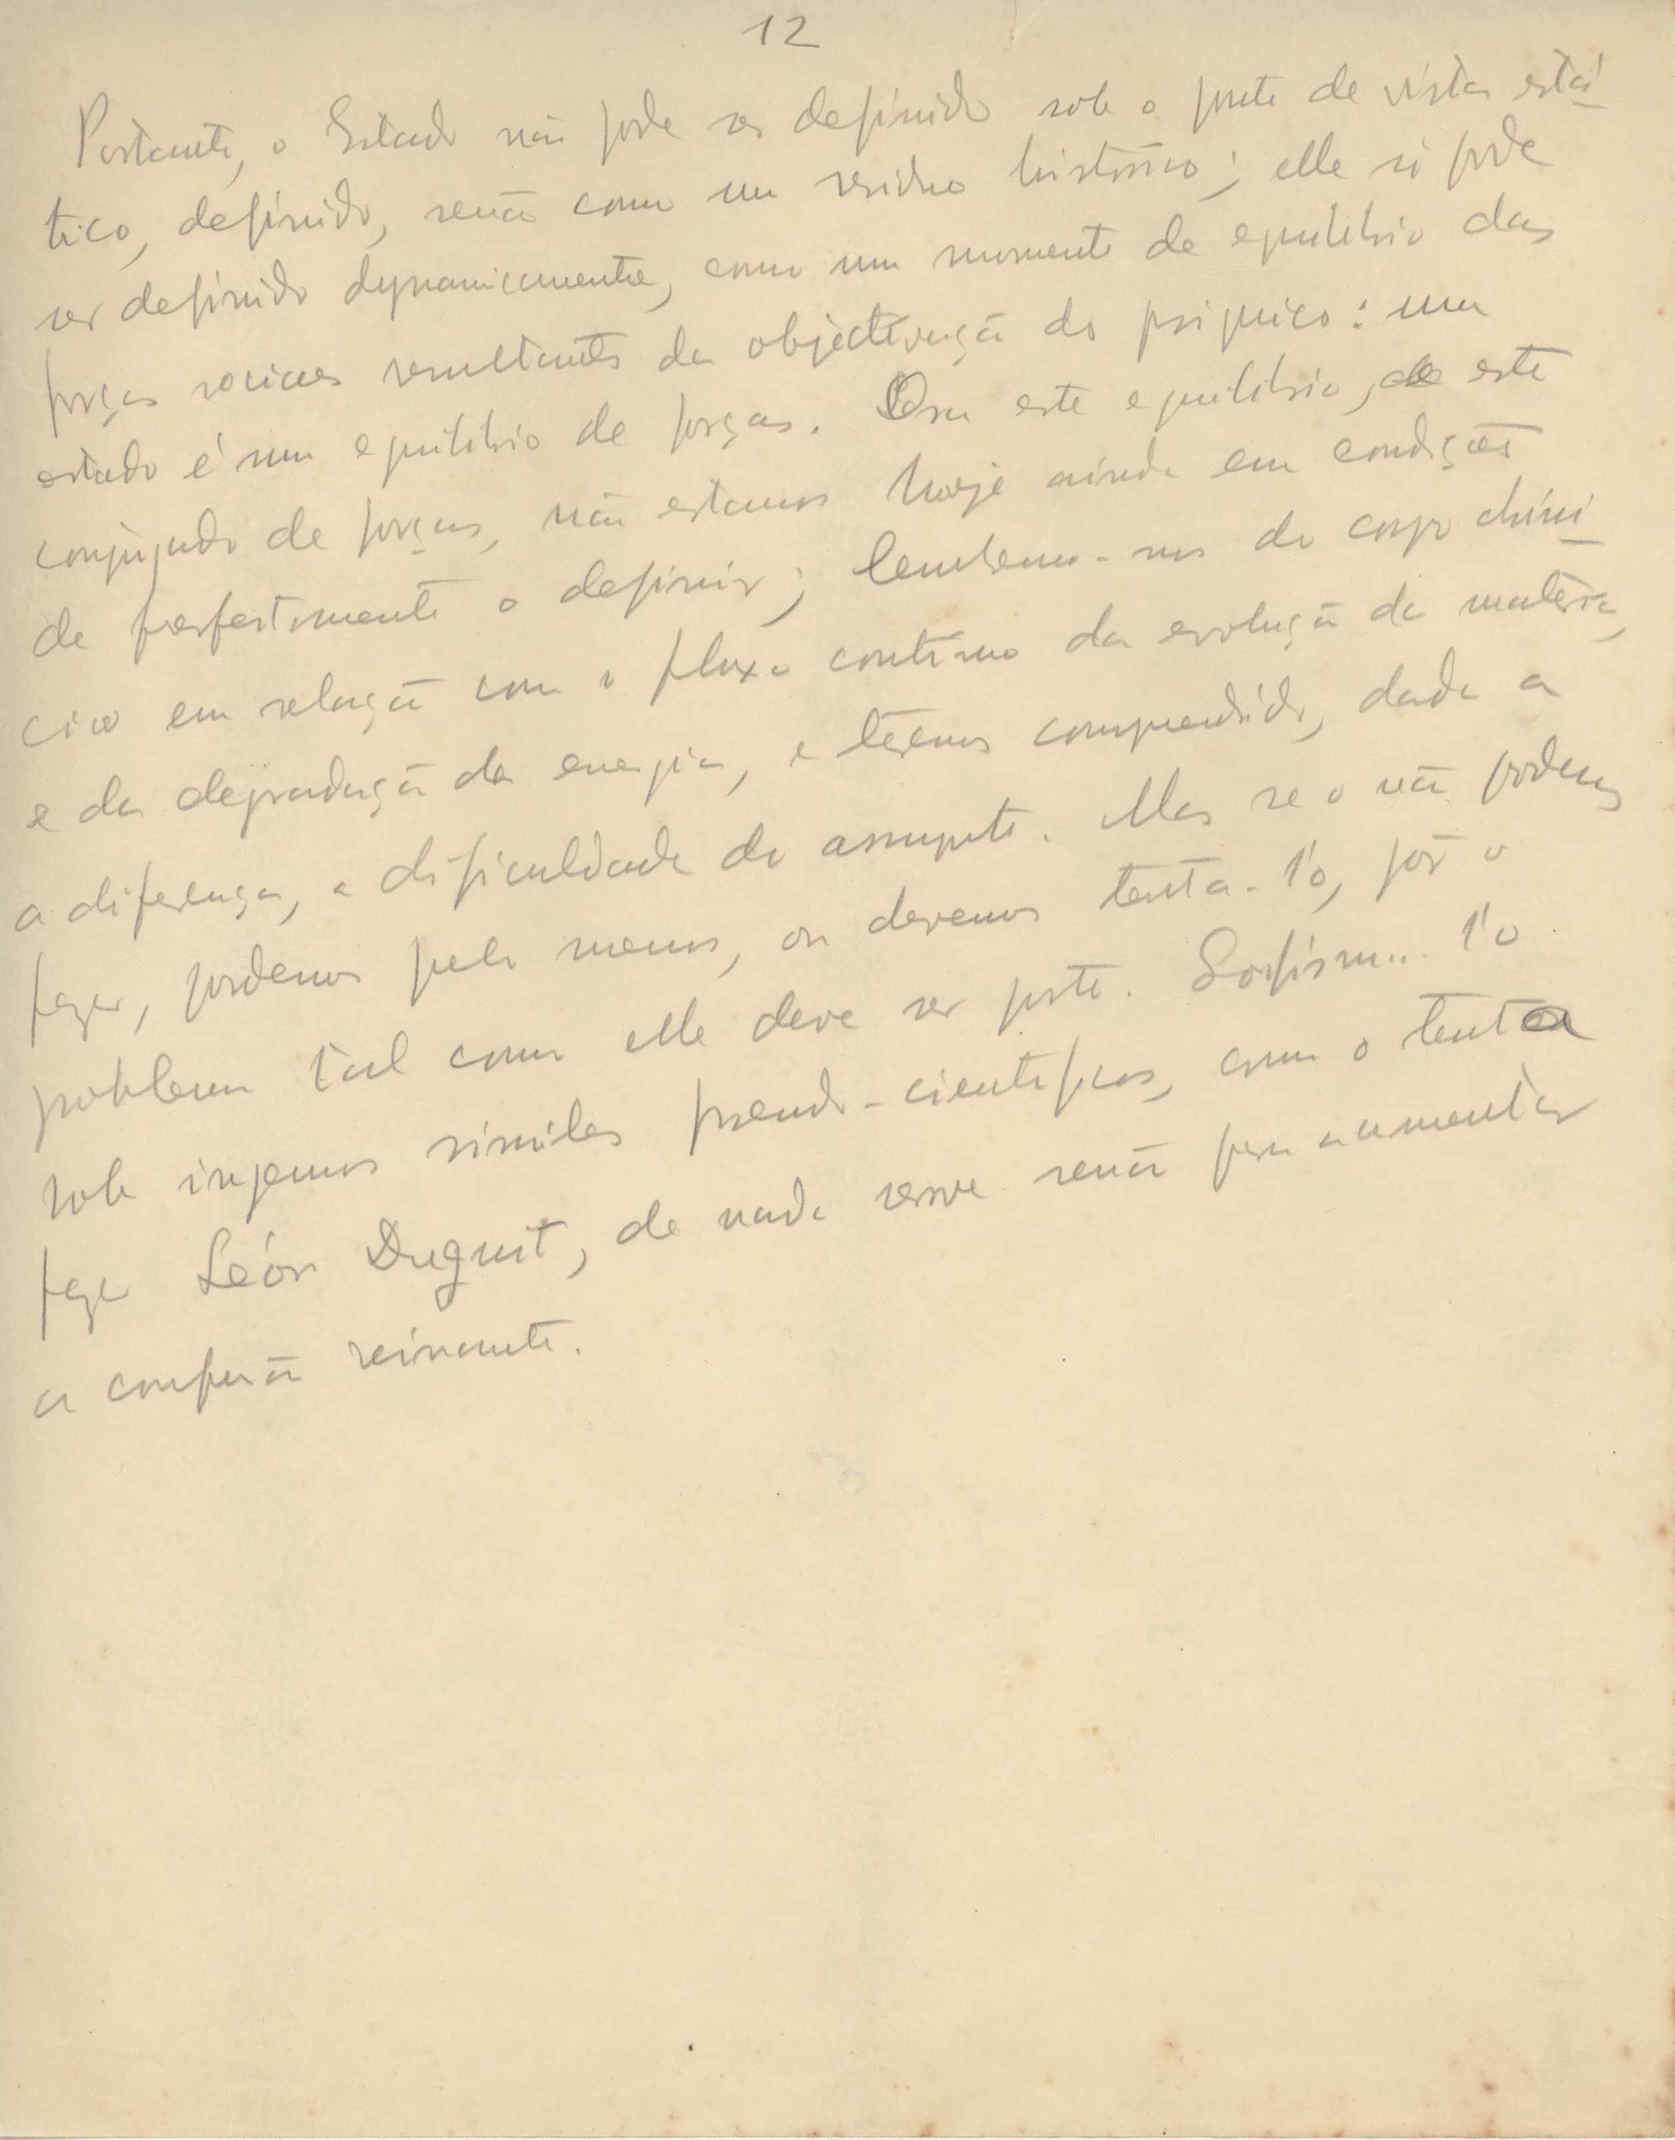 12
Portanto, o Estado não pode ser definido sob o ponto de vista está
tico, definido, senão como um residuo historico; elle só pode
ser definido dynamicamente, como um momento de equilibrio das
forças sociaes resultantes da objectivação do psiquico: um
estado é um equilibrio de forças. Ora este equilibrio, este
conjugado de forças, não estamos hoje ainda em condições
de perfeitamente o definir; lembremo-nos do corpo chimi
cico em relação com o fluxo continuo da evolução da materia,
e da degradação da energia, e teremos comprendido, dada a
a diferença, a dificuldade do assumpto. Mas se o não podemos
fazer, podemos pelo menos, ou devemos tenta-l'o, pôr o
problema tal como elle deve ser posto. l'o
sob ingenuos similes pseudo-cientificos, como o tenta
fazer Léon Duguit, de nada serve senão para aumentar
a confusão reinante.